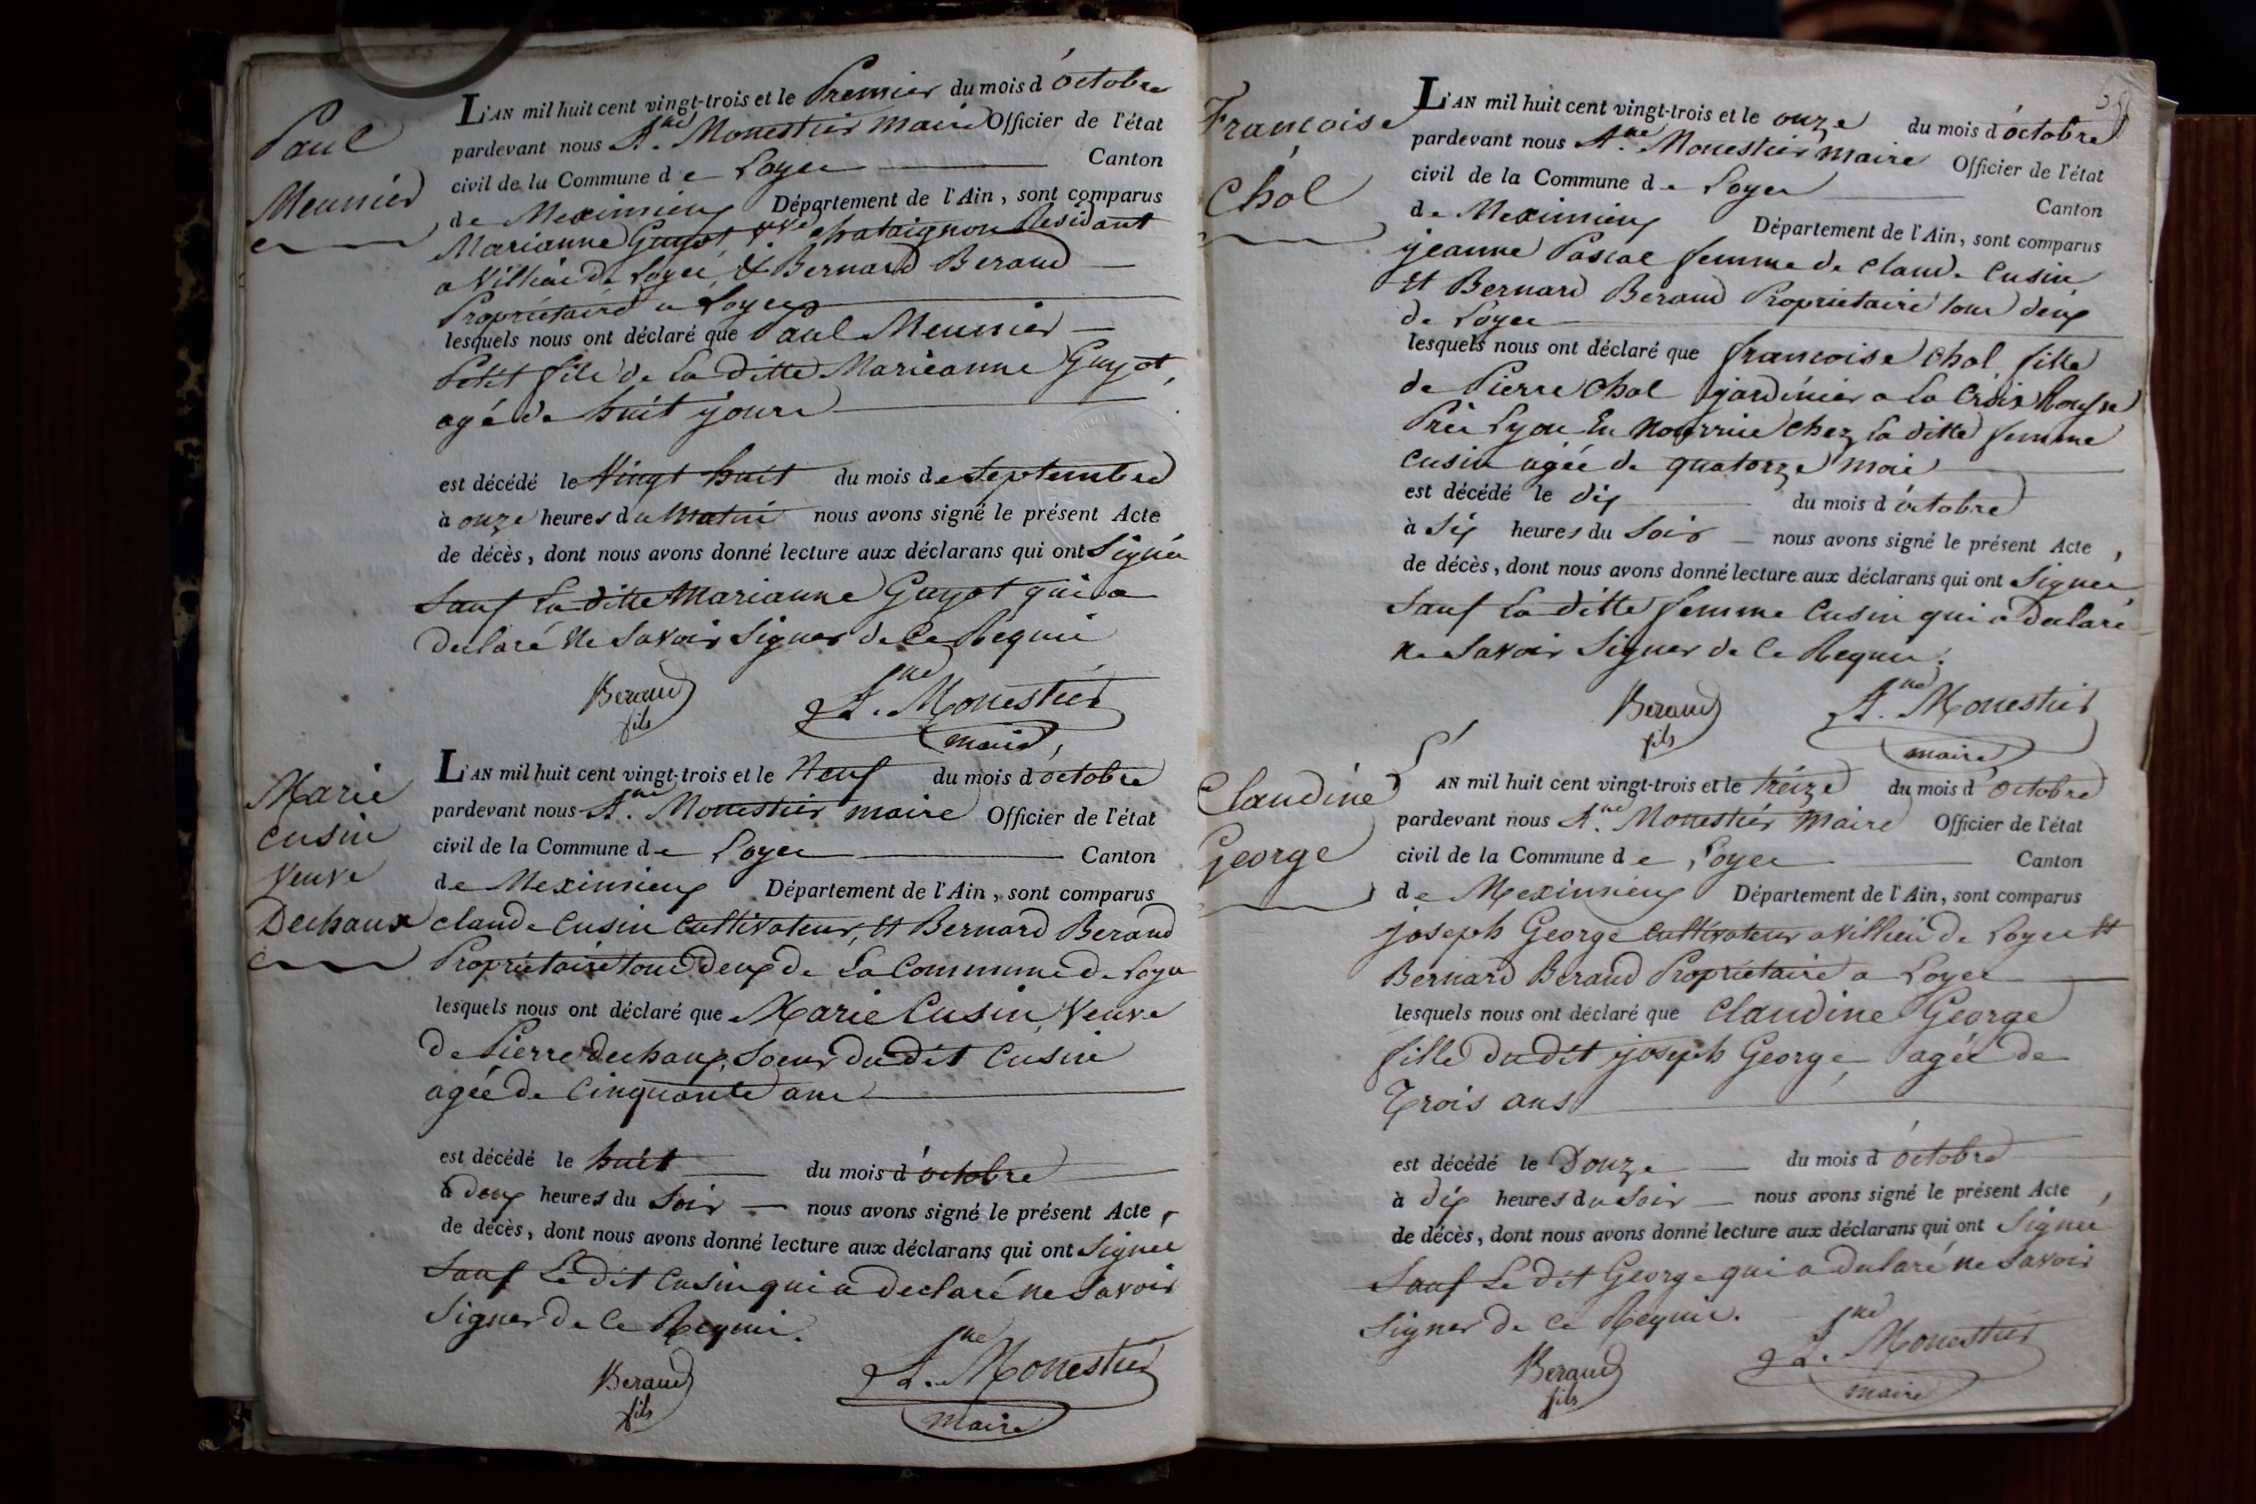 Paul
Meunier
L'AN mil huit cent vingt-trois et le Premier du mois d'octobre
pardevant nous A.ne Monestier maire Officier de l'état
civil de la Commune de Loyes Canton
de Meximieux Département de l'Ain, sont comparus
Marianne Guyot vve chataignon Résidant
a Villieu de Loyes, & Bernard Beraud
Propriétaire a Loyes
lesquels nous ont déclaré que Paul Meunier
Petit fils de la ditte Marieanne Guyot,
agé de huit jours
est décédé le Vingt huit du mois de septembre
à onze heures du Matin nous avons signé le présent Acte
de décès, dont nous avons donné lecture aux déclarans qui ont Signés
Sauf la ditte Marianne Guyot qui a
declaré ne Savoir Signer de ce Requis
Beraud
fils
A.ne Monestier
maire
Marie
cusin
Veuve
Dechaux
L'AN mil huit cent vingt-trois et le Neuf du mois d'octobre
pardevant nous A.ne Monestier maire Officier de l'état
civil de la Commune de Loyes Canton
de Meximieux Département de l'Ain, sont comparus
claude Cusin Cultivateur, Et Bernard Beraud
Propriétaire tous deux de La Commune de Loyes
lesquels nous ont déclaré que Marie Cusin, Veuve
de Pierre dechaux, Soeur du dit Cusin
agée de Cinquante ans
est décédé le huit du mois d'octobre
à deux heures du Soir nous avons signé le présent Acte,
de décès, dont nous avons donné lecture aux déclarans qui ont Signés
Sauf Le dit Cusin qui a declaré ne Savoir
Signer de ce Requis.
Beraud
fils
A.ne Monestier
maire
Françoise
Chol
L'AN mil huit cent vingt-trois et le onze du mois d'octobre
pardevant nous A.ne Monestier maire Officier de l'état
civil de la Commune de Loyes Canton
de Meximieux Département de l'Ain, sont comparus
jeanne Pascal femme de Claude Cusin
Et Bernard Beraud Propriétaire tous deux
de Loyes
lesquels nous ont déclaré que francoise Chol fille
de Pierre Chol jardinier a La Croix Rousse
Près Lyon En Nourrice chez La ditte femme
Cusin agée de quatorze mois
est décédé le dix du mois d'octobre
à Six heures du Soir nous avons signé le présent Acte,
de décès, dont nous avons donné lecture aux déclarans qui ont Signés
Sauf La ditte femme Cusin qui a Declaré
ne Savoir Signer de ce Requis.
Beraud
fils
A.ne Monestier
maire
Claudine
George
L'AN mil huit cent vingt-trois et le treize du mois d'octobre
pardevant nous A.ne Monestier Maire Officier de l'état
civil de la Commune de Loyes Canton
de Meximieux Département de l'Ain, sont comparus
joseph George Cultivateur a Villieu de Loyes Et
Bernard Beraud Propriétaire a Loyes
lesquels nous ont déclaré que Claudine George
fille du dit joseph George, agée de
Trois ans
est décédé le Douze du mois d'octobre
à dix heures du Soir nous avons signé le présent Acte,
de décès, dont nous avons donné lecture aux déclarans qui ont Signés
Sauf Le dit George qui a declaré ne Savoir
Signer de ce Requis.
Beraud
fils
A.ne Monestier
maire